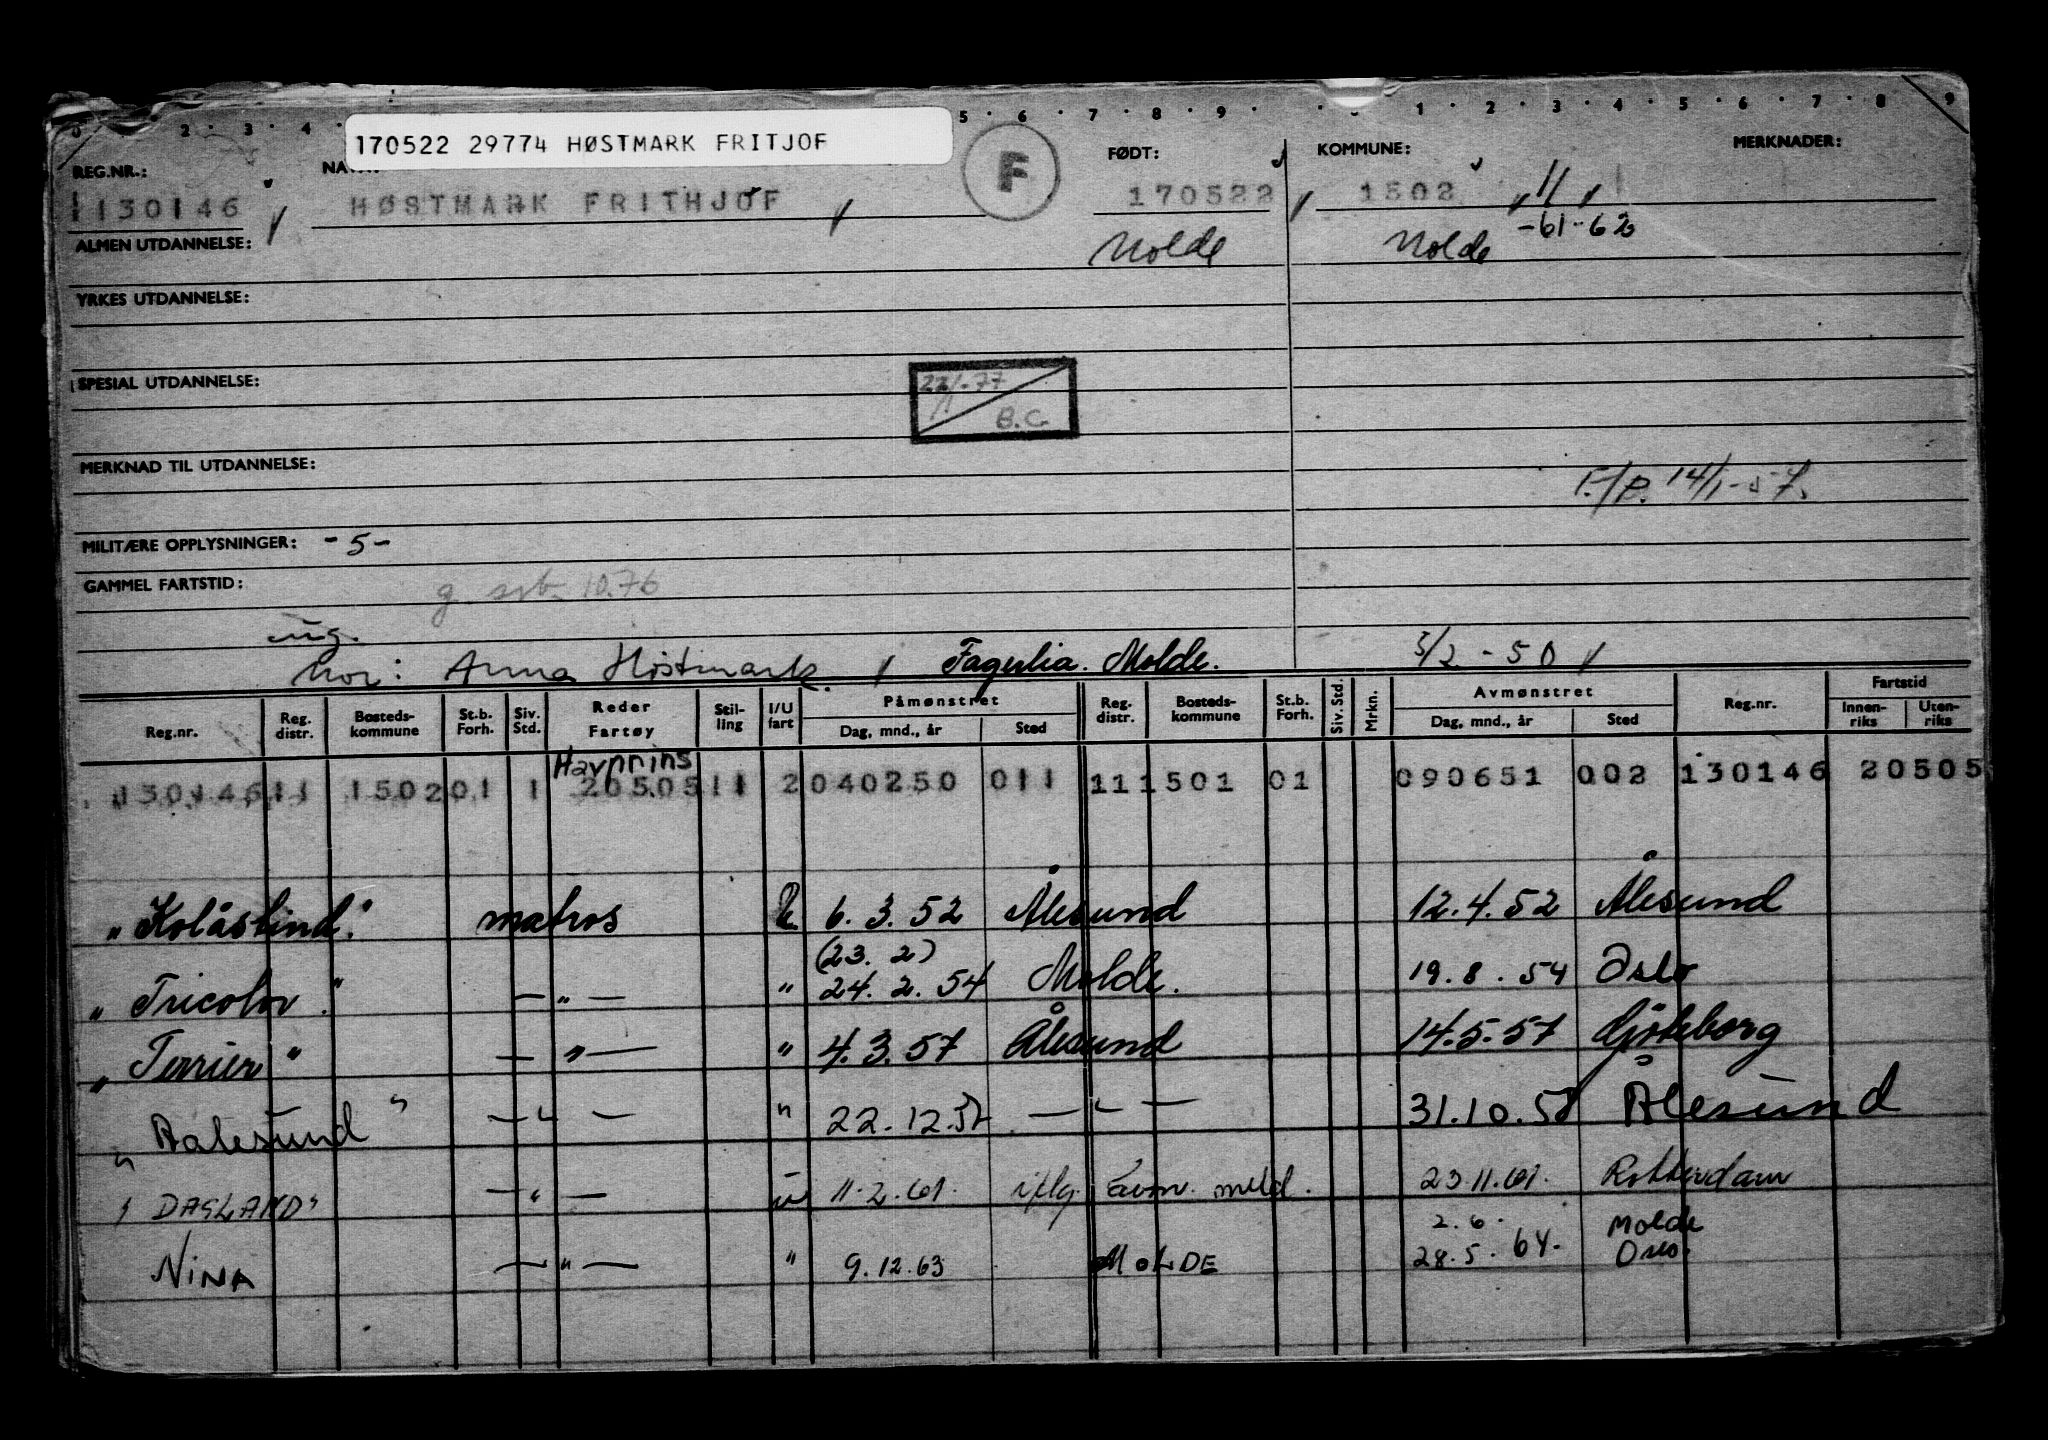 0 2 · 3 · 4 5 · 6 · 7 · 8 · 9 · · 1 · 2 · 3 · 4 · 5 · 6 · 7 · 8 · 9
170522 29774 HØSTMARK FRITJOF
REG.NR.: F FØDT: KOMMUNE: MERKNADER:
1130146 HØSTMARK FRITHJOF 170522 1502
-61-62
ALMEN UTDANNELSE: Molde Molde
YRKES UTDANNELSE:
SPESIAL UTDANNELSE:
22/1-77
B.C.
MERKNAD TIL UTDANNELSE:
F./P. 14/1-57.
MILITÆRE OPPLYSNINGER: -5-
GAMMEL FARTSTID: 10.76
ug.
Mor: Anna Høstmark. Fagerlia. Molde. 3/2-50
Reg.nr. Reg. distr. Bosteds-kommune St.b. Forh. Siv. Std. Reder Fartøy Stil-ling I/U fart Påmønstret Dag, mnd., år Sted Reg. distr. Bosteds-kommune St.b. Forh. Siv. Std. Mrkn. Avmønstret Dag, mnd., år Sted Reg.nr. Fartstid Innen-riks Uten-riks
Havprins
130146 11 1502 01 1 20505 11 2 040250 011 11 1501 01 090651 002 130146 20505
"Kolåstind." matros 6.3.52 Ålesund 12.4.52 Ålesund
(23. 2)
"Tricolor." — " — " 24.2.54 Molde. 19.8.54 Oslo
"Terrier" — " — " 4.3.57 Ålesund 14.5.57 Gøteborg
"Aalesund" — " — " 22.12.57 — " — 31.10.58 Ålesund
"DAGLAND" — " — u 11.2.61. iflg. avm. meld. 23.11.61. Rotterdam
2.6. Molde
NINA — " — " 9.12.63 MOLDE 28.5.64. Oslo.